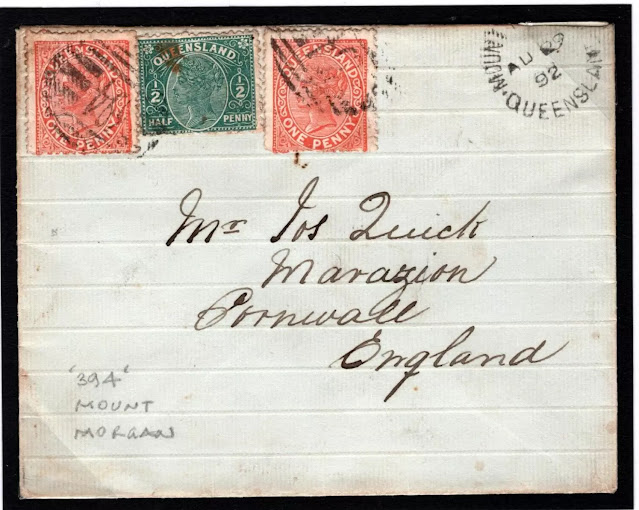 QUEENSLAND
ONE PENNY
QUEENSLAND
1/2 1/2
HALF PENNY
QUEENSLAND
ONE PENNY
AU
92
QUEENSLAND
Mr Jos Quick
Marazion
Cornwall
England
'394'
MOUNT
MORGAN